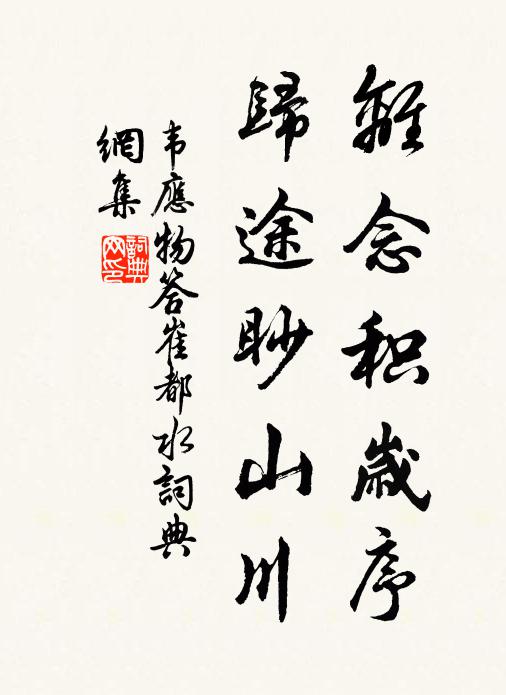 離念积歲序
歸途眇山川
韦應物答崔都水詞典
網集
詞典
网印